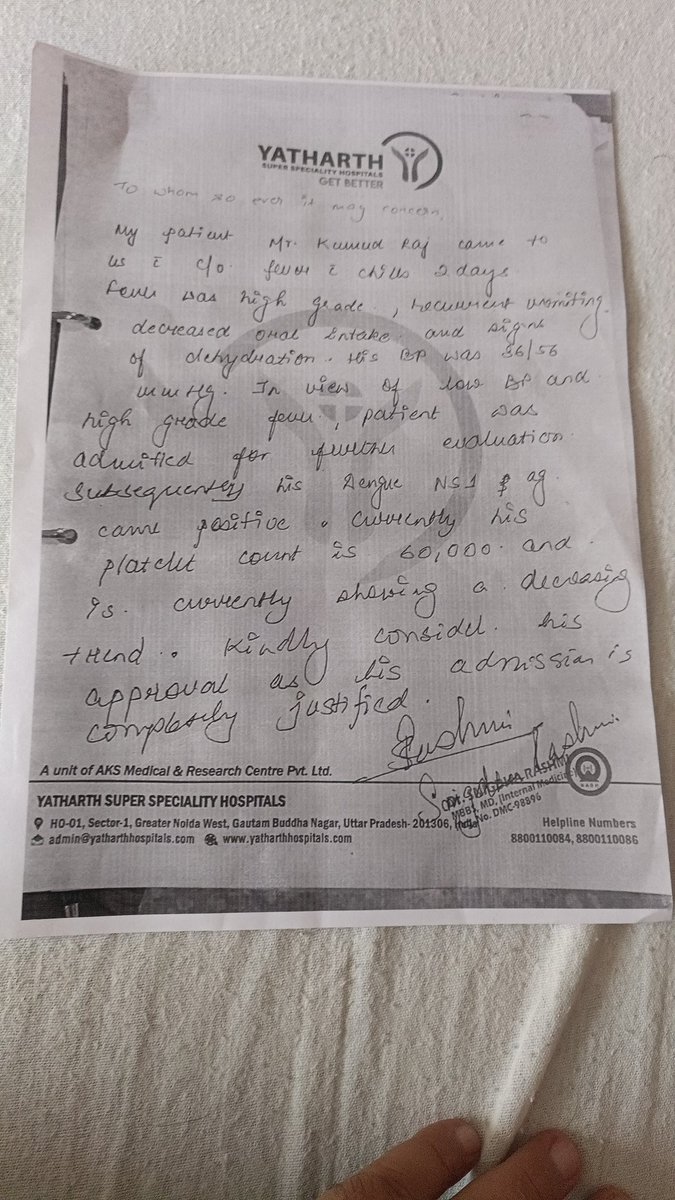 YATHARTH
SUPER SPECIALITY HOSPITALS
GET BETTER
To whom so ever it may concern,
My patient Mr. Kumud Raj came to
us c̄ c/o. fever c̄ chills 2 days.
Fever was high grade, recurrent vomiting,
decreased oral intake and signs
of dehydration. His BP was 86/56
mmHg. In view of low BP and
high grade fever, patient was
admitted for further evaluation.
Subsequently his Dengue NS1 ag
came positive. Currently his
platelet count is 60,000 and
is currently showing a decreasing
trend. Kindly consider his
approval as his admission is
completely justified.
Rashmi
Rashmi
A unit of AKS Medical & Research Centre Pvt. Ltd.
RASHMI
MBBS, MD, (Internal Medicine)
No. DMC-98896
YATHARTH SUPER SPECIALITY HOSPITALS
HO-01, Sector-1, Greater Noida West, Gautam Buddha Nagar, Uttar Pradesh- 201306,
admin@yatharthhospitals.com www.yatharthhospitals.com
Helpline Numbers
8800110084, 8800110086